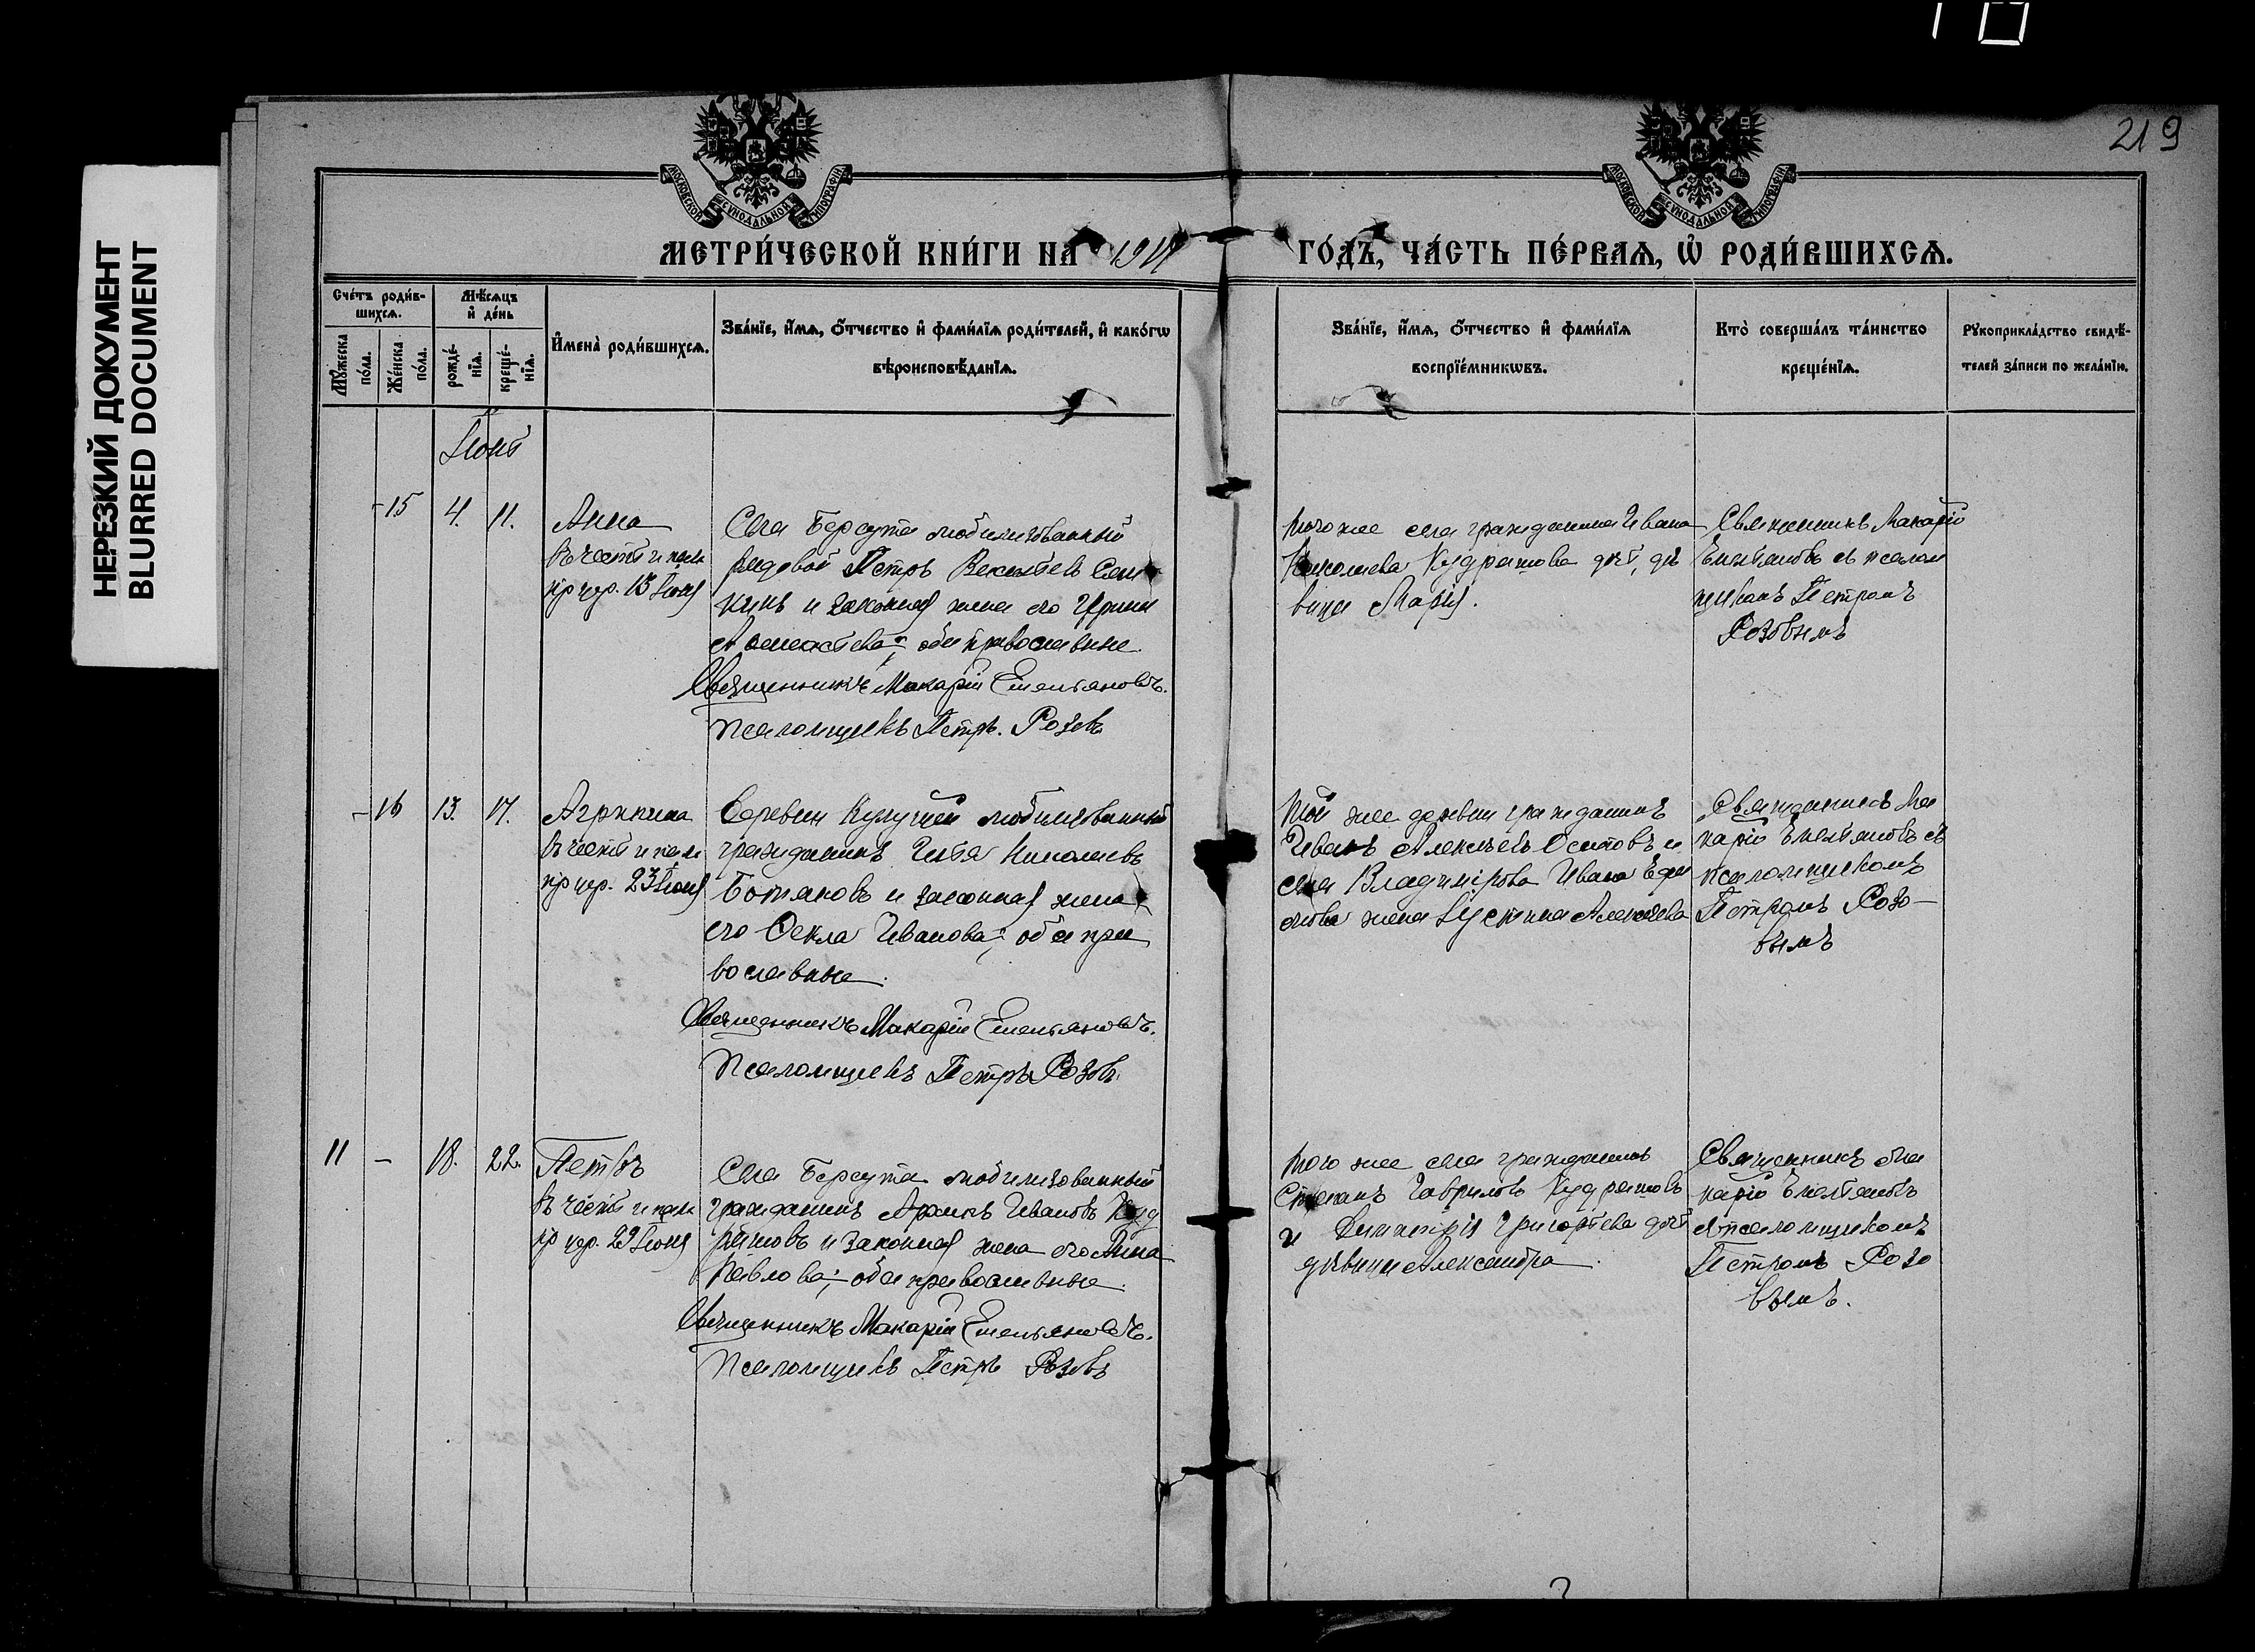 НЕРЕЗКИЙ ДОКУМЕНТ
BLURRED DOCUMENT
219
МОСКОВСКОЙ СѴНОДАЛЬНОЙ ТИПОГРАФІИ
МОСКОВСКОЙ СѴНОДАЛЬНОЙ ТИПОГРАФІИ
МЕТРИ́ЧЕСКОЙ КНИ́ГИ НА 1917 ГО́ДЪ, ЧА́СТЬ ПЕ́РВАЯ, Ѡ РОДИ́ВШИХСЯ.
Сче́тъ роди́в-
шихся.
Мѣ́сяцъ
и де́нь
Му́жеска
по́ла.
Же́нска
по́ла.
рожде́-
нїя.
креще́-
нїя.
Имена̀ роди́вшихся.
Зва́нїе, и́мя, о́тчество и фами́лїя роди́телей, и како́гѡ
вѣроисповѣ́данїя.
Зва́нїе, и́мя, о́тчество и фами́лїя
воспрїе́мникѡвъ.
Кто̀ соверша́лъ та́инство
креще́нїя.
Рукоприкла́дство свидѣ́-
телей за́писи по жела́нїю.
Іюнь
-15 4. 11.
Анна
въ честь и пам
пр чер. 13 Іюня
Села Берсута мобилизованный
рядовой Петръ Васильевъ Сен
кинъ и законная жена его Ирина
оба православные.
Священникъ Макарій Емельяновъ.
Псаломщикъ Петръ. Розовъ
того же села гражданина Ивана
Николаева Кудряшова дочь, дѣ
вица Марія.
Священникъ Макарій
Емельяновъ съ псалом
щикомъ Петромъ
Розовымъ
-16 13. 17.
Агрипина
въ честь и пам
пр чер. 23 Іюня
Деревни мобилизованный
гражданинъ Илья Николаевъ
Ботяковъ и законная жена
его Фекла Иванова; оба пра
вославные.
Священникъ Макарій Емельяновъ.
Псаломщикъ Петръ Розовъ.
той же деревни гражданинъ
Иванъ Алексѣевъ Осиповъ и
села Владимірова Ивана Ефи
мова жена Іустина Алексѣева
Священникъ Ма
карій Емельяновъ съ
псаломщикомъ
Петромъ Розо-
вымъ
11 - 18. 22.
Петръ
въ честь и пам
пр чер. 29 Іюня
Села Берсута мобилизованный
гражданинъ Иванов Куд
ряшовъ и законная жена его Анна
Павлова; оба православные.
Священникъ Макарій Емельяновъ.
Псаломщикъ Петръ Розовъ
того же села гражданинъ
Степанъ Гавриловъ Кудряшовъ
и Димитрія Григорьева дочь
дѣвица Александра.
Священникъ Ма
карій Емельяновъ
съ псаломщикомъ
Петромъ Розо
вымъ.